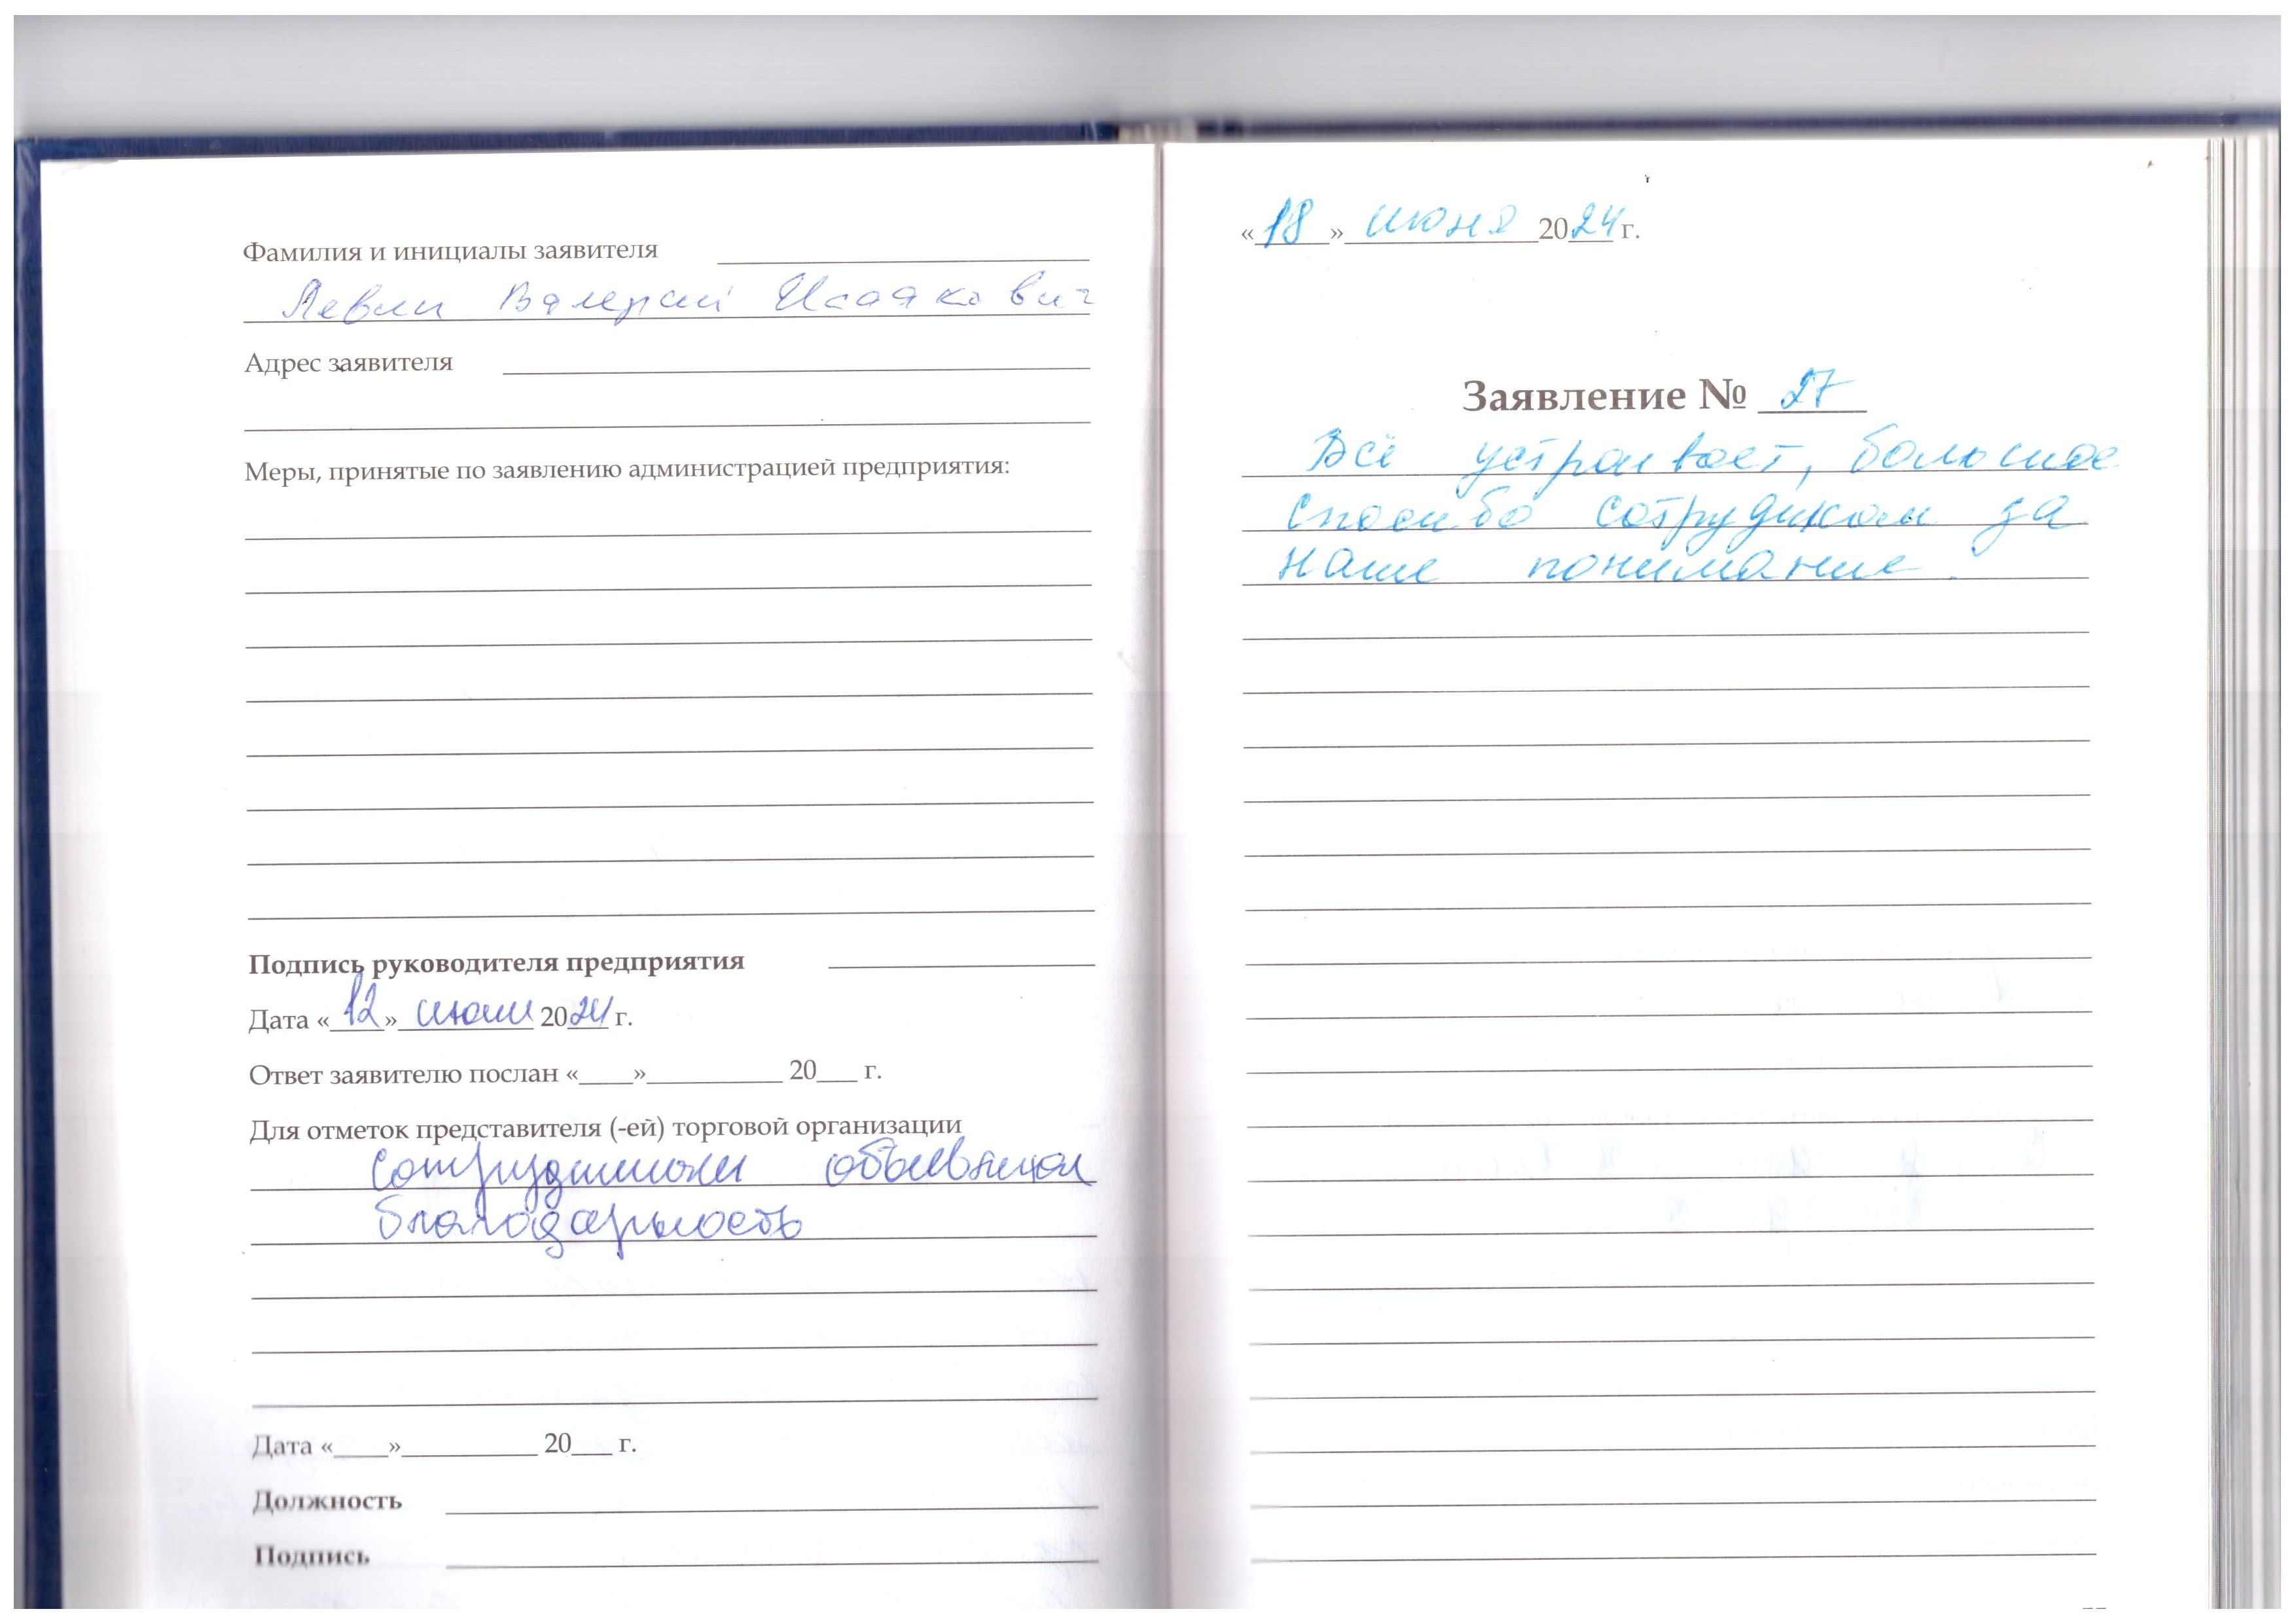 Фамилия и инициалы заявителя
Левин Валерий Исаакович
Адрес заявителя
Меры, принятые по заявлению администрацией предприятия:
Подпись руководителя предприятия
Дата «12» июля 2024 г.
Ответ заявителю послан «____»__________ 20___ г.
Для отметок представителя (-ей) торговой организации
сотрудникам объявлена
благодарность
Дата «____»__________ 20___ г.
Должность
Подпись
«18» июня 2024 г.
Заявление № 27
Всё устраивает, большое
спасибо сотрудикам за
наше понимание.